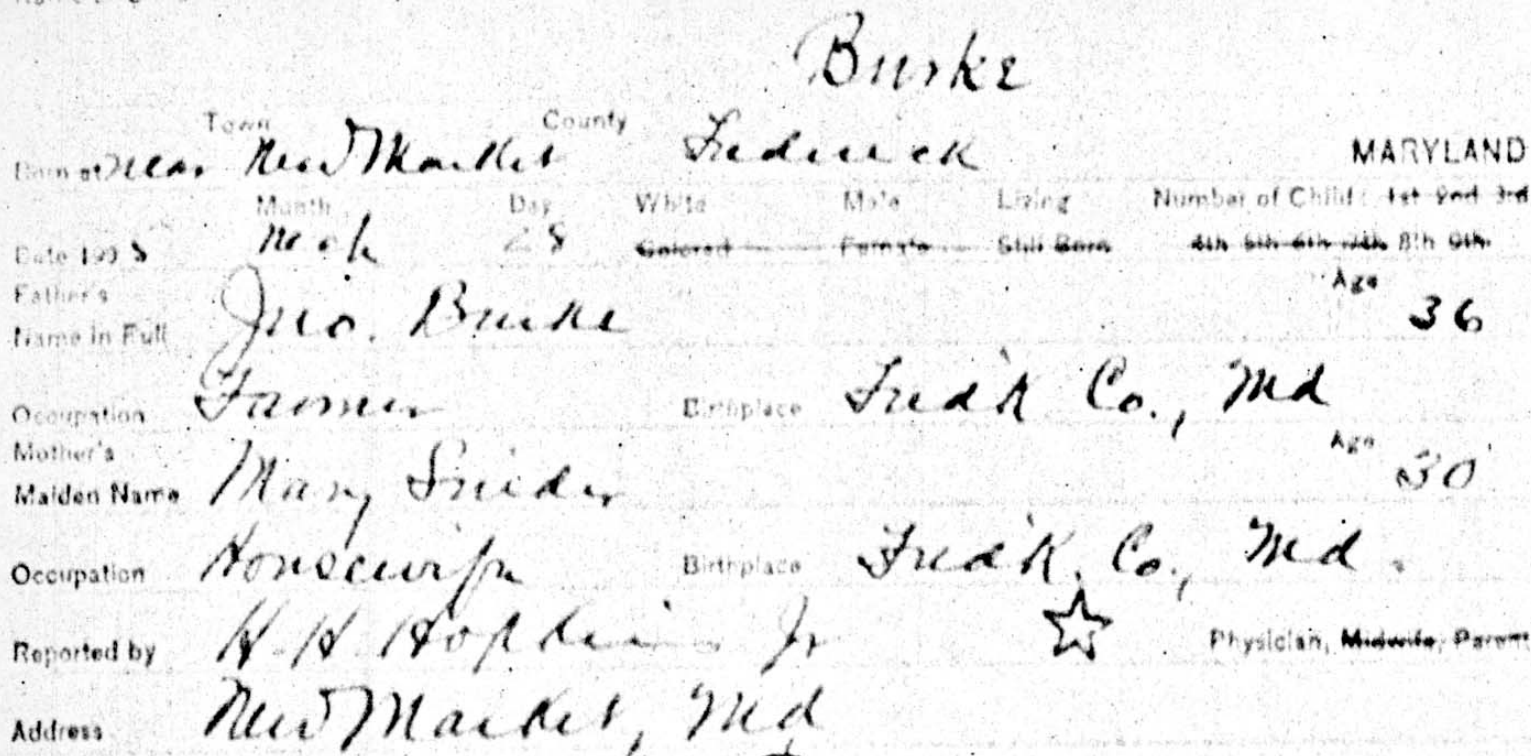 Burke
Town County
Born at near New Market Frederick MARYLAND
Month Day White Male Living Number of Child: 1st 2nd 3rd
Date 190 Mch 28 Colored Female Still Born 4th 5th 6th 7th 8th 9th
Father's Age
Name in Full Jno. Burke 36
Occupation Farmer Birthplace Fred'k Co., Md
Mother's Age
Maiden Name Mary Snider 30
Occupation Housewife Birthplace Fred'k. Co., Md.
Reported by H. H. Hopkins Jr Physician, Midwife, Parent
Address New Market, Md